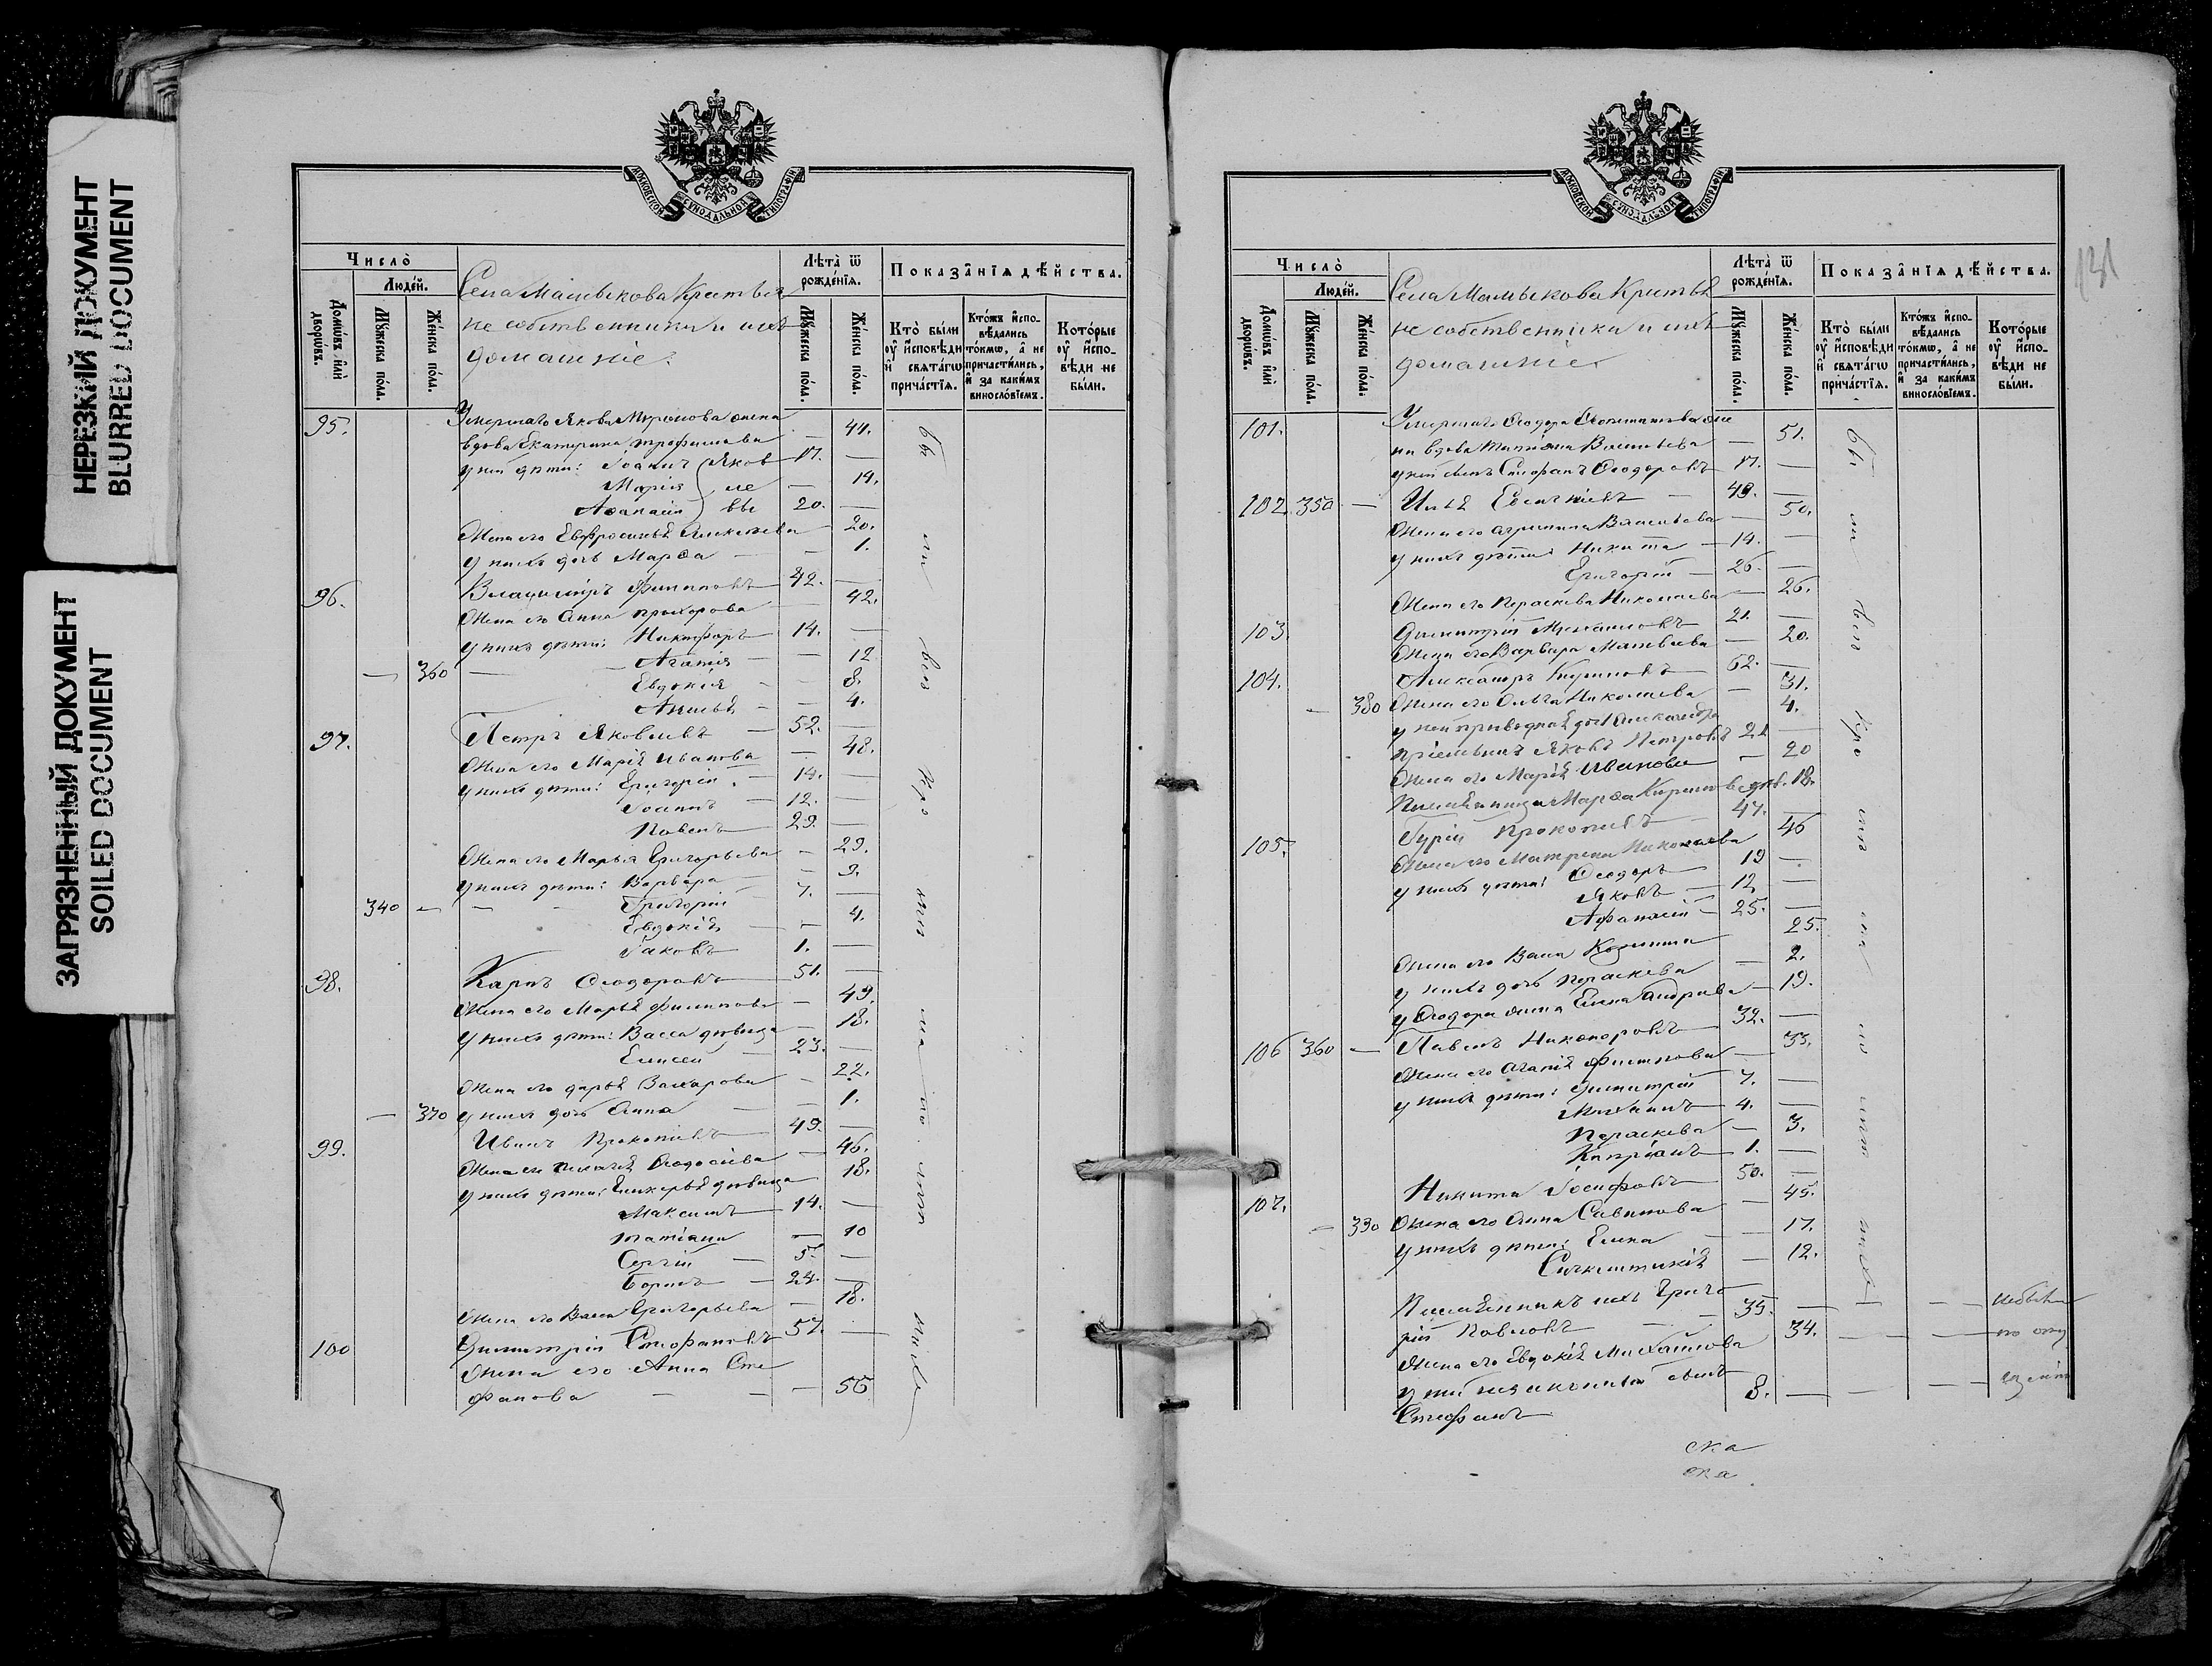 НЕРЕЗКИЙ ДОКУМЕНТ
BLURRED DOCUMENT
ЗАГРЯЗНЕННЫЙ ДОКУМЕНТ
SOILED DOCUMENT
МОСКОВСКОЙ СѴНОДАЛЬНОЙ ТИПОГРАФІИ
Число̀
Люде́й.
Домѡ́въ и҆лѝ дворѡ́въ.
Мꙋ́жеска по́ла.
Же́нска по́ла.
Села Мамыкова Кристья
не собственники и ихъ
домашніе.
Лѣ́та ѿ рожде́нїѧ.
Мꙋ́жеска по́ла.
Же́нска по́ла.
Показа̑нїѧ дѣ́йства.
Кто̀ бы́ли ᲂу҆ и҆спо́вѣди и҆ свѧта́гѡ прича́стїѧ.
Кто́жъ и҆сповѣ́дались то́кмѡ, а҆ не причасти́лись, и҆ за каки́мъ винословїемъ.
Кото́рые ᲂу҆ и҆спо́вѣди не бы́ли.
95. Умершаго Якова Миронова жена
вдова Екатерина Трофимова — 44.
у ней дѣти: Іоаннъ Яков 17. —
Марія ле — 14.
Аѳанасій вы 20. —
Жена его Евфросинія Алексѣева — 20.
у нихъ дочь Марѳа — — 1.
96. Владиміръ Филиповъ 42. —
Жена его Анна Прохорова — 42.
у нихъ дѣти: Никифоръ 14. —
— 360 — Агапія — — 12
Евдокія — — 8.
— — 4.
97. Петръ Яковлевъ — 52. —
Жена его Марія Иванова — 48.
у нихъ дѣти: Григорій — 14. —
Іоаннъ — 12. —
Павелъ — 29. —
Жена его Марья Григорьева — 29.
у нихъ дѣти: Варвара — — 9.
340 — — Григорій — 7. —
Евдокія — — 4.
Іаковъ 1. —
98. Карпъ Ѳеодоровъ — 51. —
Жена его Марья Филипова — 49.
у нихъ дѣти: Васса дѣвица — 18.
Елисей — 23. —
Жена его Дарья Захарова — 22.
— 370 у нихъ дочь Анна — — 1.
99. Иванъ Прокопіевъ — 49. —
Жена его Ѳеодосіева — 46.
у нихъ дѣти: Гликерья дѣвица 18.
Максимъ — 14. —
Татіана — 10
Сергій — 5. —
Борисъ — 24. —
Жена его Васса Григорьева — 18.
100 Димитрій Стефановъ 57. —
Жена его Анна Сте
фанова — — — 56
бы ли всѣ кро
МОСКОВСКОЙ СѴНОДАЛЬНОЙ ТИПОГРАФІИ
131
Число̀
Люде́й.
Домѡ́въ и҆лѝ дворѡ́въ.
Мꙋ́жеска по́ла.
Же́нска по́ла.
Села Мамыкова Кристья
не собственники и ихъ
домашніе.
Лѣ́та ѿ рожде́нїѧ.
Мꙋ́жеска по́ла.
Же́нска по́ла.
Показа̑нїѧ дѣ́йства.
Кто̀ бы́ли ᲂу҆ и҆спо́вѣди и҆ свѧта́гѡ прича́стїѧ.
Кто́жъ и҆сповѣ́дались то́кмѡ, а҆ не причасти́лись, и҆ за каки́мъ винословїемъ.
Кото́рые ᲂу҆ и҆спо́вѣди не бы́ли.
101. Умершаго Ѳеодора же
на вдова Татіана Васильева — 51.
у ней сынъ Стефанъ Ѳеодоровъ 17. —
102. 350 — Илья — 49. —
Жена его Агрипина Васильева — 50.
у нихъ дѣти: Никита — 14. —
Григорій — 26. —
Жена его Параскева Николаева — 26.
103. Димитрій Михаиловъ 21. —
Жена его Варвара Матвѣева — 20.
104. Александръ 62. —
— 380 Жена его Ольга Николаева — 31.
у ней приводная дочь Александра 4.
пріемышъ Яковъ Петровъ 21 —
Жена его Марія Иванова — 20
Марѳа дѣв. 18.
105. Гурій Прокопіевъ — 47. —
Жена его Матрена Николаева 46
у нихъ дѣти: Ѳеодоръ 19 —
Яковъ — 12 —
Афанасій — 25. —
Жена его Васа Козмина 25.
у нихъ дочь Параскева — 2.
у Ѳеодора жена Елена Андреева — 19.
106 360 — Павелъ Никаноровъ 32. —
Жена его Агапія Филипова — 33.
у нихъ дѣти: Димитрій 7. —
Михаилъ — 4. —
Параскева — 3.
Капріанъ 1. —
107. Никита Іосифовъ 50. —
— 390 Жена его Анна Савинова — 45.
у нихъ дѣти: Елена — — 17.
Синклитикія — 12.
ихъ Григо
рій Павловъ — — 35. — — —
Жена его Евдокія Михайлова 34. — — —
у ней незаконный сынъ
Стефанъ 8. — — — —
бы ли всѣ кро
небыли
по отлу